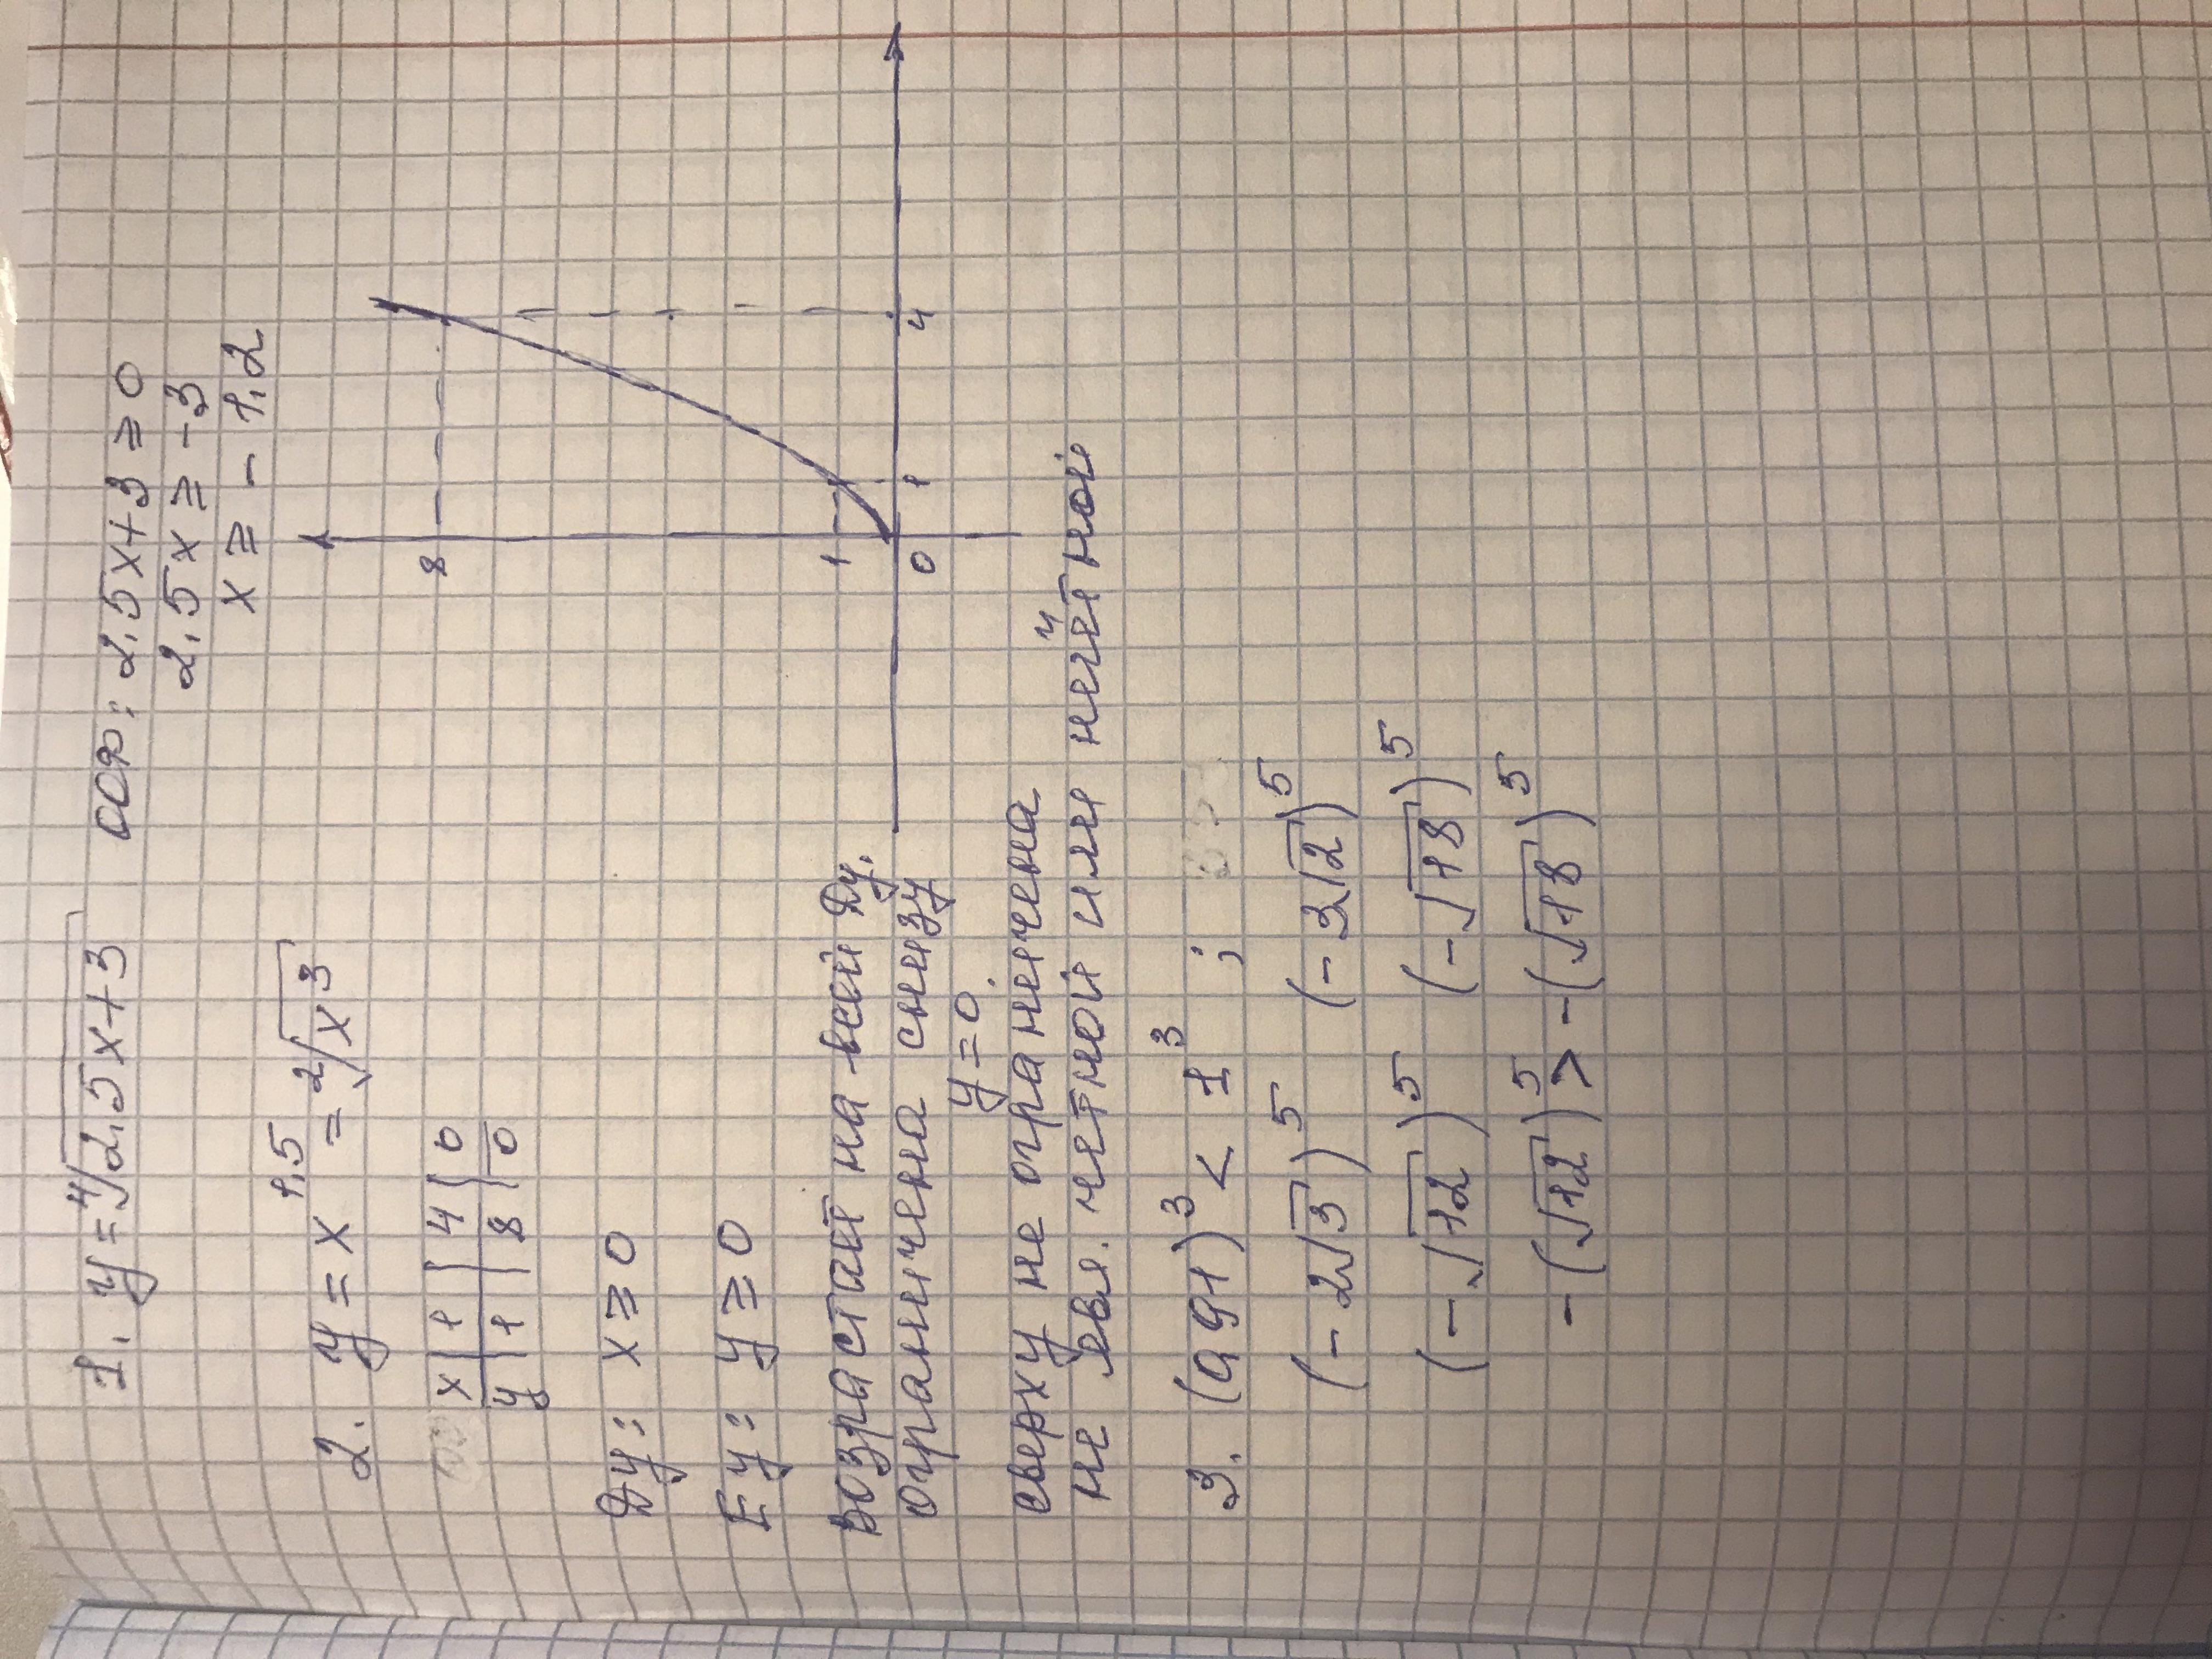 1. y = ⁴√2,5x+3 ООФ: 2,5x+3 ≥ 0
2,5x ≥ -3
x ≥ -1,2
2. y = x^1,5 = ²√x³
x | 1 | 4 | 0
y | 1 | 8 | 0
8
1
0 1 4
Dy: x ≥ 0
Ey: y ≥ 0
Возрастает на всей Dy.
ограничена снизу
y = 0.
сверху не ограничена
не явл. четной или нечетной
3. (0,91)³ < 1³ ;
(-2√3)⁵ (-3√2)⁵
(-√12)⁵ (-√18)⁵
-(√12)⁵ > -(√18)⁵